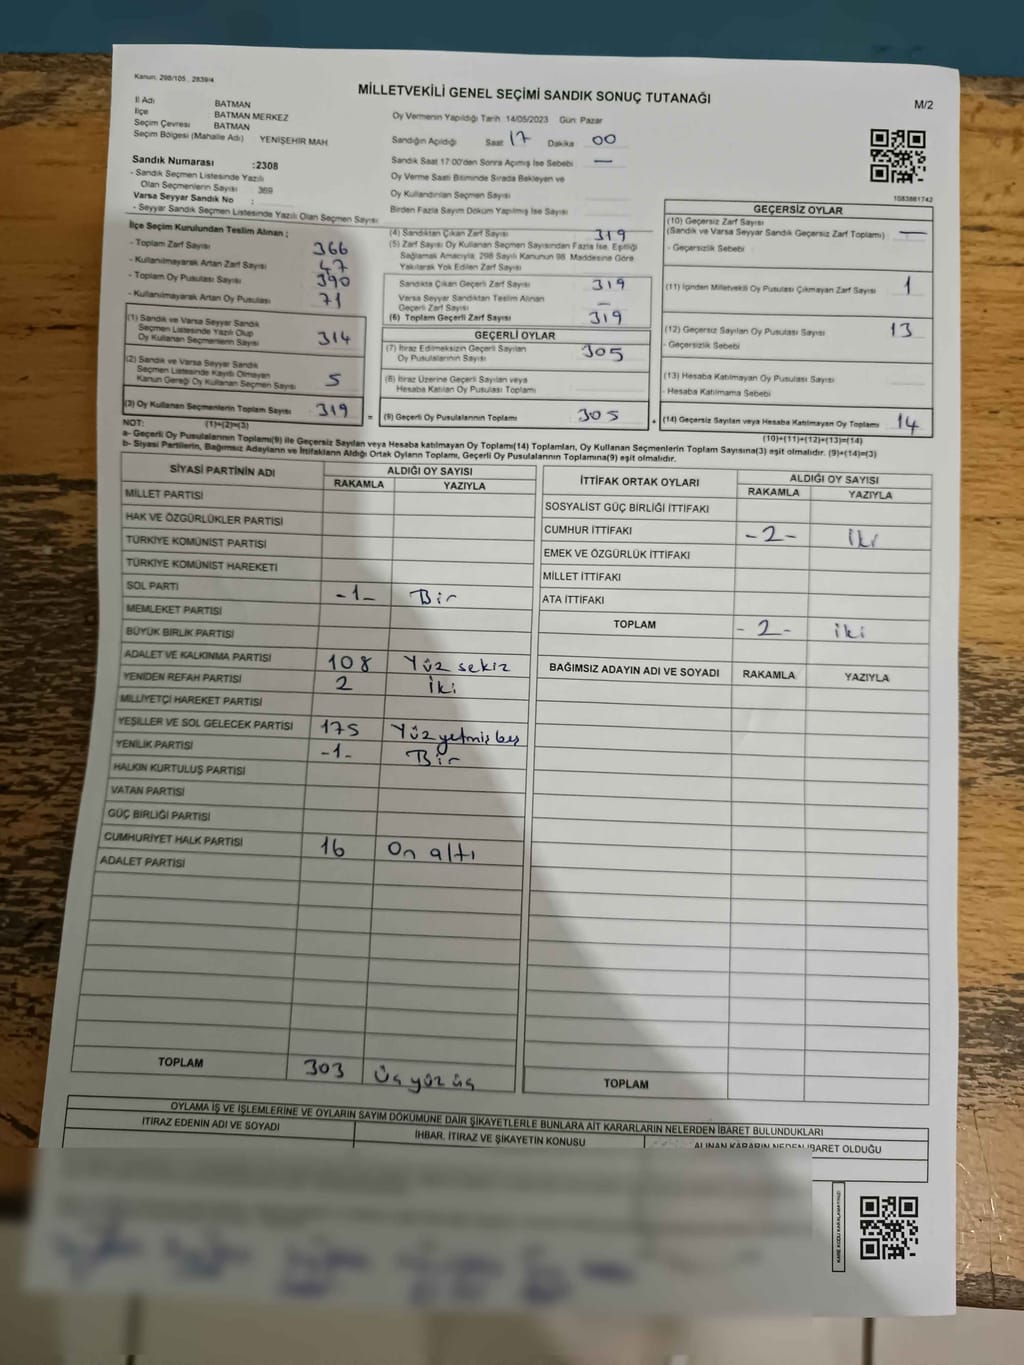 Kanun: 298/105 , 2839/4
MİLLETVEKİLİ GENEL SEÇİMİ SANDIK SONUÇ TUTANAĞI
M/2
İl Adı BATMAN
İlçe BATMAN MERKEZ
Seçim Çevresi BATMAN
Seçim Bölgesi (Mahalle Adı) YENİŞEHİR MAH
Sandık Numarası :2308
- Sandık Seçmen Listesinde Yazılı
Olan Seçmenlerin Sayısı 369
Varsa Seyyar Sandık No :
- Seyyar Sandık Seçmen Listesinde Yazılı Olan Seçmen Sayısı
Oy Vermenin Yapıldığı Tarih 14/05/2023 Gün: Pazar
Sandığın Açıldığı Saat 17 Dakika 00
Sandık Saat 17:00'den Sonra Açılmış İse Sebebi —
Oy Verme Saati Bitiminde Sırada Bekleyen ve
Oy Kullandırılan Seçmen Sayısı
Birden Fazla Sayım Döküm Yapılmış İse Sayısı
1083881742
İlçe Seçim Kurulundan Teslim Alınan ;
- Toplam Zarf Sayısı 366
- Kullanılmayarak Artan Zarf Sayısı 47
- Toplam Oy Pusulası Sayısı 390
- Kullanılmayarak Artan Oy Pusulası 71
(1) Sandık ve Varsa Seyyar Sandık
Seçmen Listesinde Yazılı Olup
Oy Kullanan Seçmenlerin Sayısı 314
(2) Sandık ve Varsa Seyyar Sandık
Seçmen Listesinde Kayıtlı Olmayan
Kanun Gereği Oy Kullanan Seçmen Sayısı 5
(3) Oy Kullanan Seçmenlerin Toplam Sayısı 319 =
(1)+(2)=(3)
(4) Sandıktan Çıkan Zarf Sayısı 319
(5) Zarf Sayısı Oy Kullanan Seçmen Sayısından Fazla İse, Eşitliği
Sağlamak Amacıyla, 298 Sayılı Kanunun 98. Maddesine Göre
Yakılarak Yok Edilen Zarf Sayısı
Sandıkta Çıkan Geçerli Zarf Sayısı 319
Varsa Seyyar Sandıktan Teslim Alınan
Geçerli Zarf Sayısı —
(6) Toplam Geçerli Zarf Sayısı 319
GEÇERLİ OYLAR
(7) İtiraz Edilmeksizin Geçerli Sayılan
Oy Pusulalarının Sayısı 305
(8) İtiraz Üzerine Geçerli Sayılan veya
Hesaba Katılan Oy Pusulası Toplamı
(9) Geçerli Oy Pusulalarının Toplamı 305 +
GEÇERSİZ OYLAR
(10) Geçersiz Zarf Sayısı
(Sandık ve Varsa Seyyar Sandık Geçersiz Zarf Toplamı) —
- Geçersizlik Sebebi
(11) İçinden Milletvekili Oy Pusulası Çıkmayan Zarf Sayısı 1
(12) Geçersiz Sayılan Oy Pusulası Sayısı 13
- Geçersizlik Sebebi
(13) Hesaba Katılmayan Oy Pusulası Sayısı
- Hesaba Katılmama Sebebi
(14) Geçersiz Sayılan veya Hesaba Katılmayan Oy Toplamı 14
(10)+(11)+(12)+(13)=(14)
NOT:
a- Geçerli Oy Pusulalarının Toplamı(9) ile Geçersiz Sayılan veya Hesaba katılmayan Oy Toplamı(14) Toplamları, Oy Kullanan Seçmenlerin Toplam Sayısına(3) eşit olmalıdır. (9)+(14)=(3)
b- Siyasi Partilerin, Bağımsız Adayların ve İttifakların Aldığı Ortak Oyların Toplamı, Geçerli Oy Pusulalarının Toplamına(9) eşit olmalıdır.
SİYASİ PARTİNİN ADI ALDIĞI OY SAYISI
RAKAMLA YAZIYLA
MİLLET PARTİSİ
HAK VE ÖZGÜRLÜKLER PARTİSİ
TÜRKİYE KOMÜNİST PARTİSİ
TÜRKİYE KOMÜNİST HAREKETİ
SOL PARTİ -1- Bir
MEMLEKET PARTİSİ
BÜYÜK BİRLİK PARTİSİ
ADALET VE KALKINMA PARTİSİ 108 Yüz sekiz
YENİDEN REFAH PARTİSİ 2 İki
MİLLİYETÇİ HAREKET PARTİSİ
YEŞİLLER VE SOL GELECEK PARTİSİ 175 Yüz yetmiş beş
YENİLİK PARTİSİ -1- Bir
HALKIN KURTULUŞ PARTİSİ
VATAN PARTİSİ
GÜÇ BİRLİĞİ PARTİSİ
CUMHURİYET HALK PARTİSİ 16 On altı
ADALET PARTİSİ
TOPLAM 303 Üç yüz üç
İTTİFAK ORTAK OYLARI ALDIĞI OY SAYISI
RAKAMLA YAZIYLA
SOSYALİST GÜÇ BİRLİĞİ İTTİFAKI
CUMHUR İTTİFAKI -2- İki
EMEK VE ÖZGÜRLÜK İTTİFAKI
MİLLET İTTİFAKI
ATA İTTİFAKI
TOPLAM -2- iki
BAĞIMSIZ ADAYIN ADI VE SOYADI RAKAMLA YAZIYLA
TOPLAM
OYLAMA İŞ VE İŞLEMLERİNE VE OYLARIN SAYIM DÖKÜMÜNE DAİR ŞİKAYETLERLE BUNLARA AİT KARARLARIN NELERDEN İBARET BULUNDUKLARI
İTİRAZ EDENİN ADI VE SOYADI İHBAR, İTİRAZ VE ŞİKAYETİN KONUSU ALINAN KARARIN NEDEN İBARET OLDUĞU